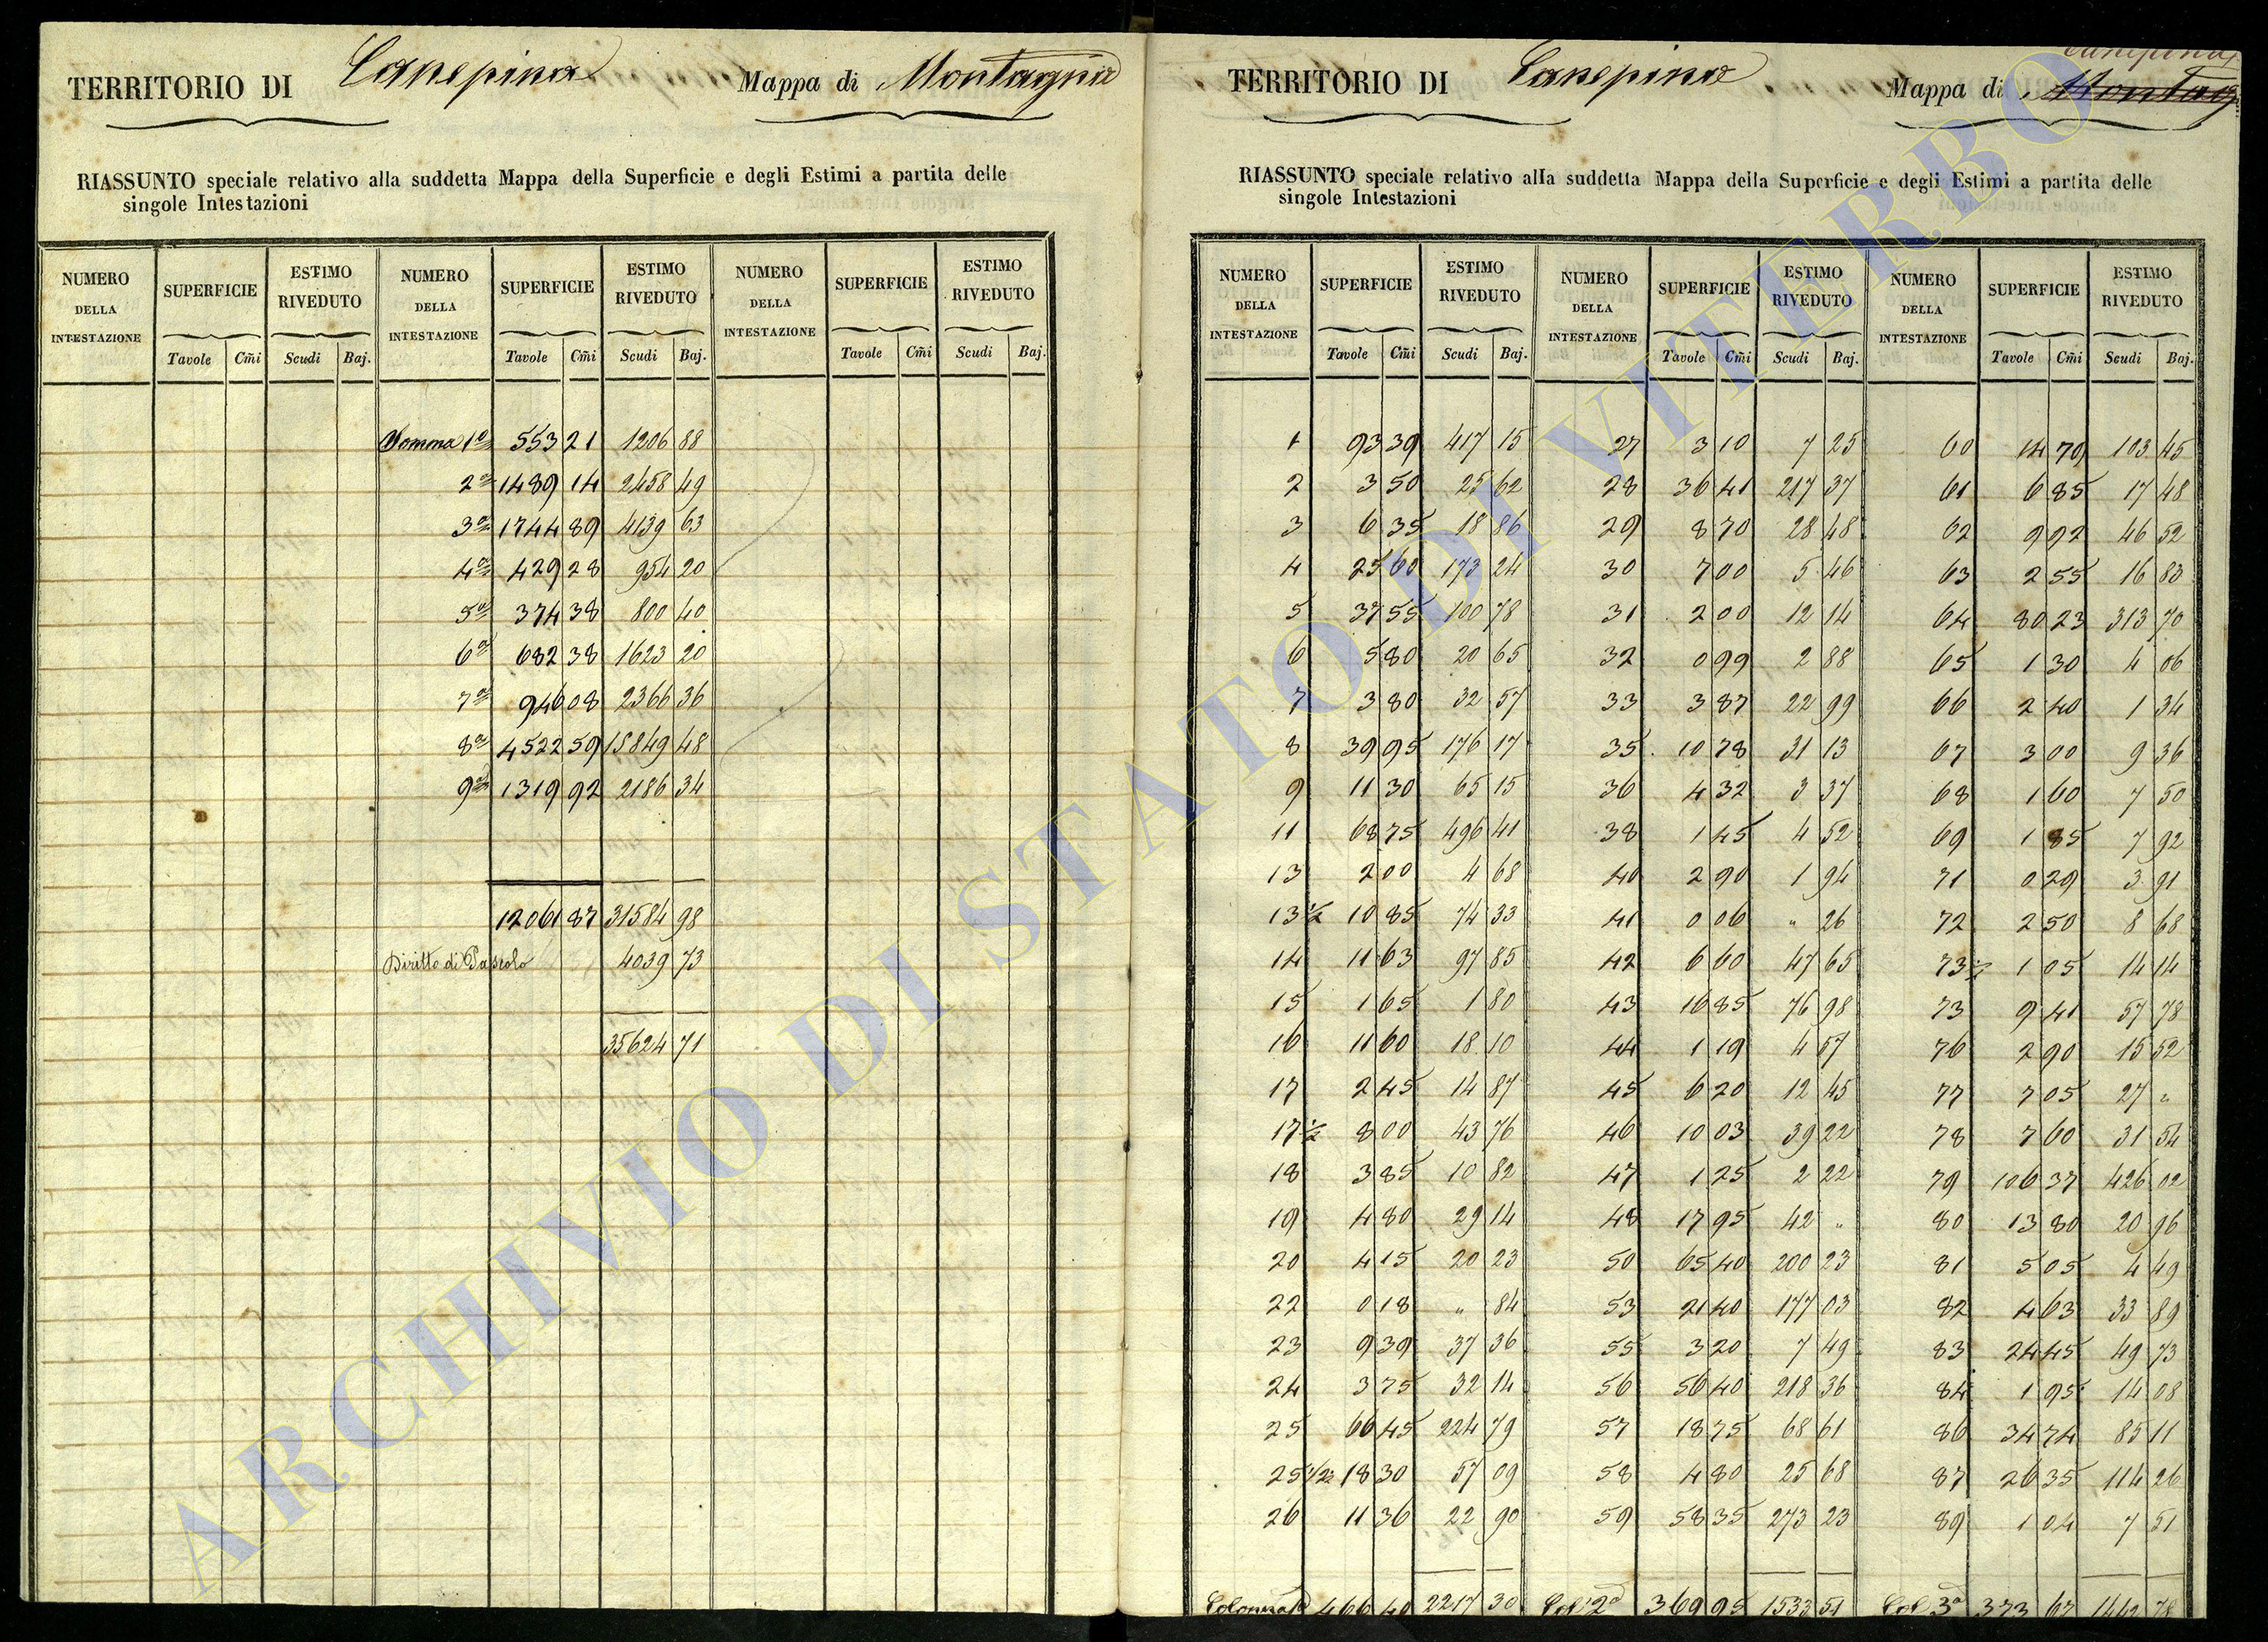 TERRITORIO DI Canepina Mappa di Montagna
RIASSUNTO speciale relativo alla suddetta Mappa della Superficie e degli Estimi a partita delle
singole Intestazioni
NUMERO DELLA INTESTAZIONE SUPERFICIE ESTIMO RIVEDUTO NUMERO DELLA INTESTAZIONE SUPERFICIE ESTIMO RIVEDUTO NUMERO DELLA INTESTAZIONE SUPERFICIE ESTIMO RIVEDUTO
Tavole Cm̃i Scudi Baj. Tavole Cm̃i Scudi Baj. Tavole Cm̃i Scudi Baj.
Somma 1ª 553 21 1206 88
2ª 1489 14 2458 49
3ª 1744 89 4139 63
4ª 429 28 954 20
5ª 374 38 800 40
6ª 682 38 1623 20
7ª 946 08 2366 36
8ª 4522 59 15849 48
9ª 1319 92 2186 34
12061 87 31584 98
Diritto di Pascolo 4039 73
35624 71
TERRITORIO DI Canepina Mappa di Montag
Canepina
RIASSUNTO speciale relativo alla suddetta Mappa della Superficie e degli Estimi a partita delle
singole Intestazioni
NUMERO DELLA INTESTAZIONE SUPERFICIE ESTIMO RIVEDUTO NUMERO DELLA INTESTAZIONE SUPERFICIE ESTIMO RIVEDUTO NUMERO DELLA INTESTAZIONE SUPERFICIE ESTIMO RIVEDUTO
Tavole Cm̃i Scudi Baj. Tavole Cm̃i Scudi Baj. Tavole Cm̃i Scudi Baj.
1 93 39 417 15 27 3 10 7 25 60 14 70 103 45
2 3 50 25 62 28 36 41 217 37 61 6 85 17 48
3 6 35 18 86 29 8 70 28 48 62 9 92 46 52
4 25 60 173 24 30 7 00 5 46 63 2 55 16 83
5 37 55 100 78 31 2 00 12 14 64 80 23 313 70
6 5 80 20 65 32 0 99 2 88 65 1 30 4 06
7 3 80 32 57 33 3 87 22 99 66 2 40 1 34
8 39 95 176 17 35 10 78 31 13 67 3 00 9 36
9 11 30 65 15 36 4 32 3 37 68 1 60 7 50
11 68 75 496 41 38 1 45 4 52 69 1 85 7 92
13 2 00 4 68 40 2 90 1 94 71 0 29 3 91
13 1/2 10 85 74 33 41 0 06 " 26 72 2 50 8 68
14 11 63 97 85 42 6 60 47 65 73 1/2 1 05 14 14
15 1 65 1 80 43 16 85 76 98 73 9 41 57 78
16 11 60 18 10 44 1 19 4 57 76 2 90 15 52
17 2 45 14 87 45 6 20 12 45 77 7 05 27 "
17 1/2 8 00 43 76 46 10 03 39 22 78 7 60 31 54
18 3 85 10 82 47 1 25 2 22 79 106 37 426 02
19 4 80 29 14 48 17 95 42 " 80 13 80 20 96
20 4 15 20 23 50 65 40 200 23 81 5 05 4 49
22 0 18 " 84 53 21 40 177 03 82 4 63 33 89
23 9 39 37 36 55 3 20 7 49 83 24 45 49 73
24 3 75 32 14 56 56 40 218 36 84 1 95 14 08
25 66 45 224 79 57 18 75 68 61 86 34 74 85 11
25 1/2 18 30 57 09 58 4 80 25 68 87 26 35 114 26
26 11 36 22 90 59 58 35 273 23 89 1 04 7 51
Colonna 1ª 466 40 2217 30 Col 2ª 369 95 1533 51 Col 3ª 373 67 1442 78
ARCHIVIO DI STATO DI VITERBO